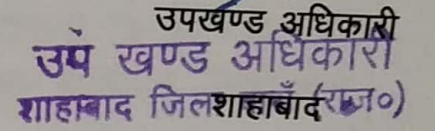 उपखण्ड अधिकारी
उप खण्ड अधिकारी
शाहाबाद जिलशाहाबाँद(राज०)